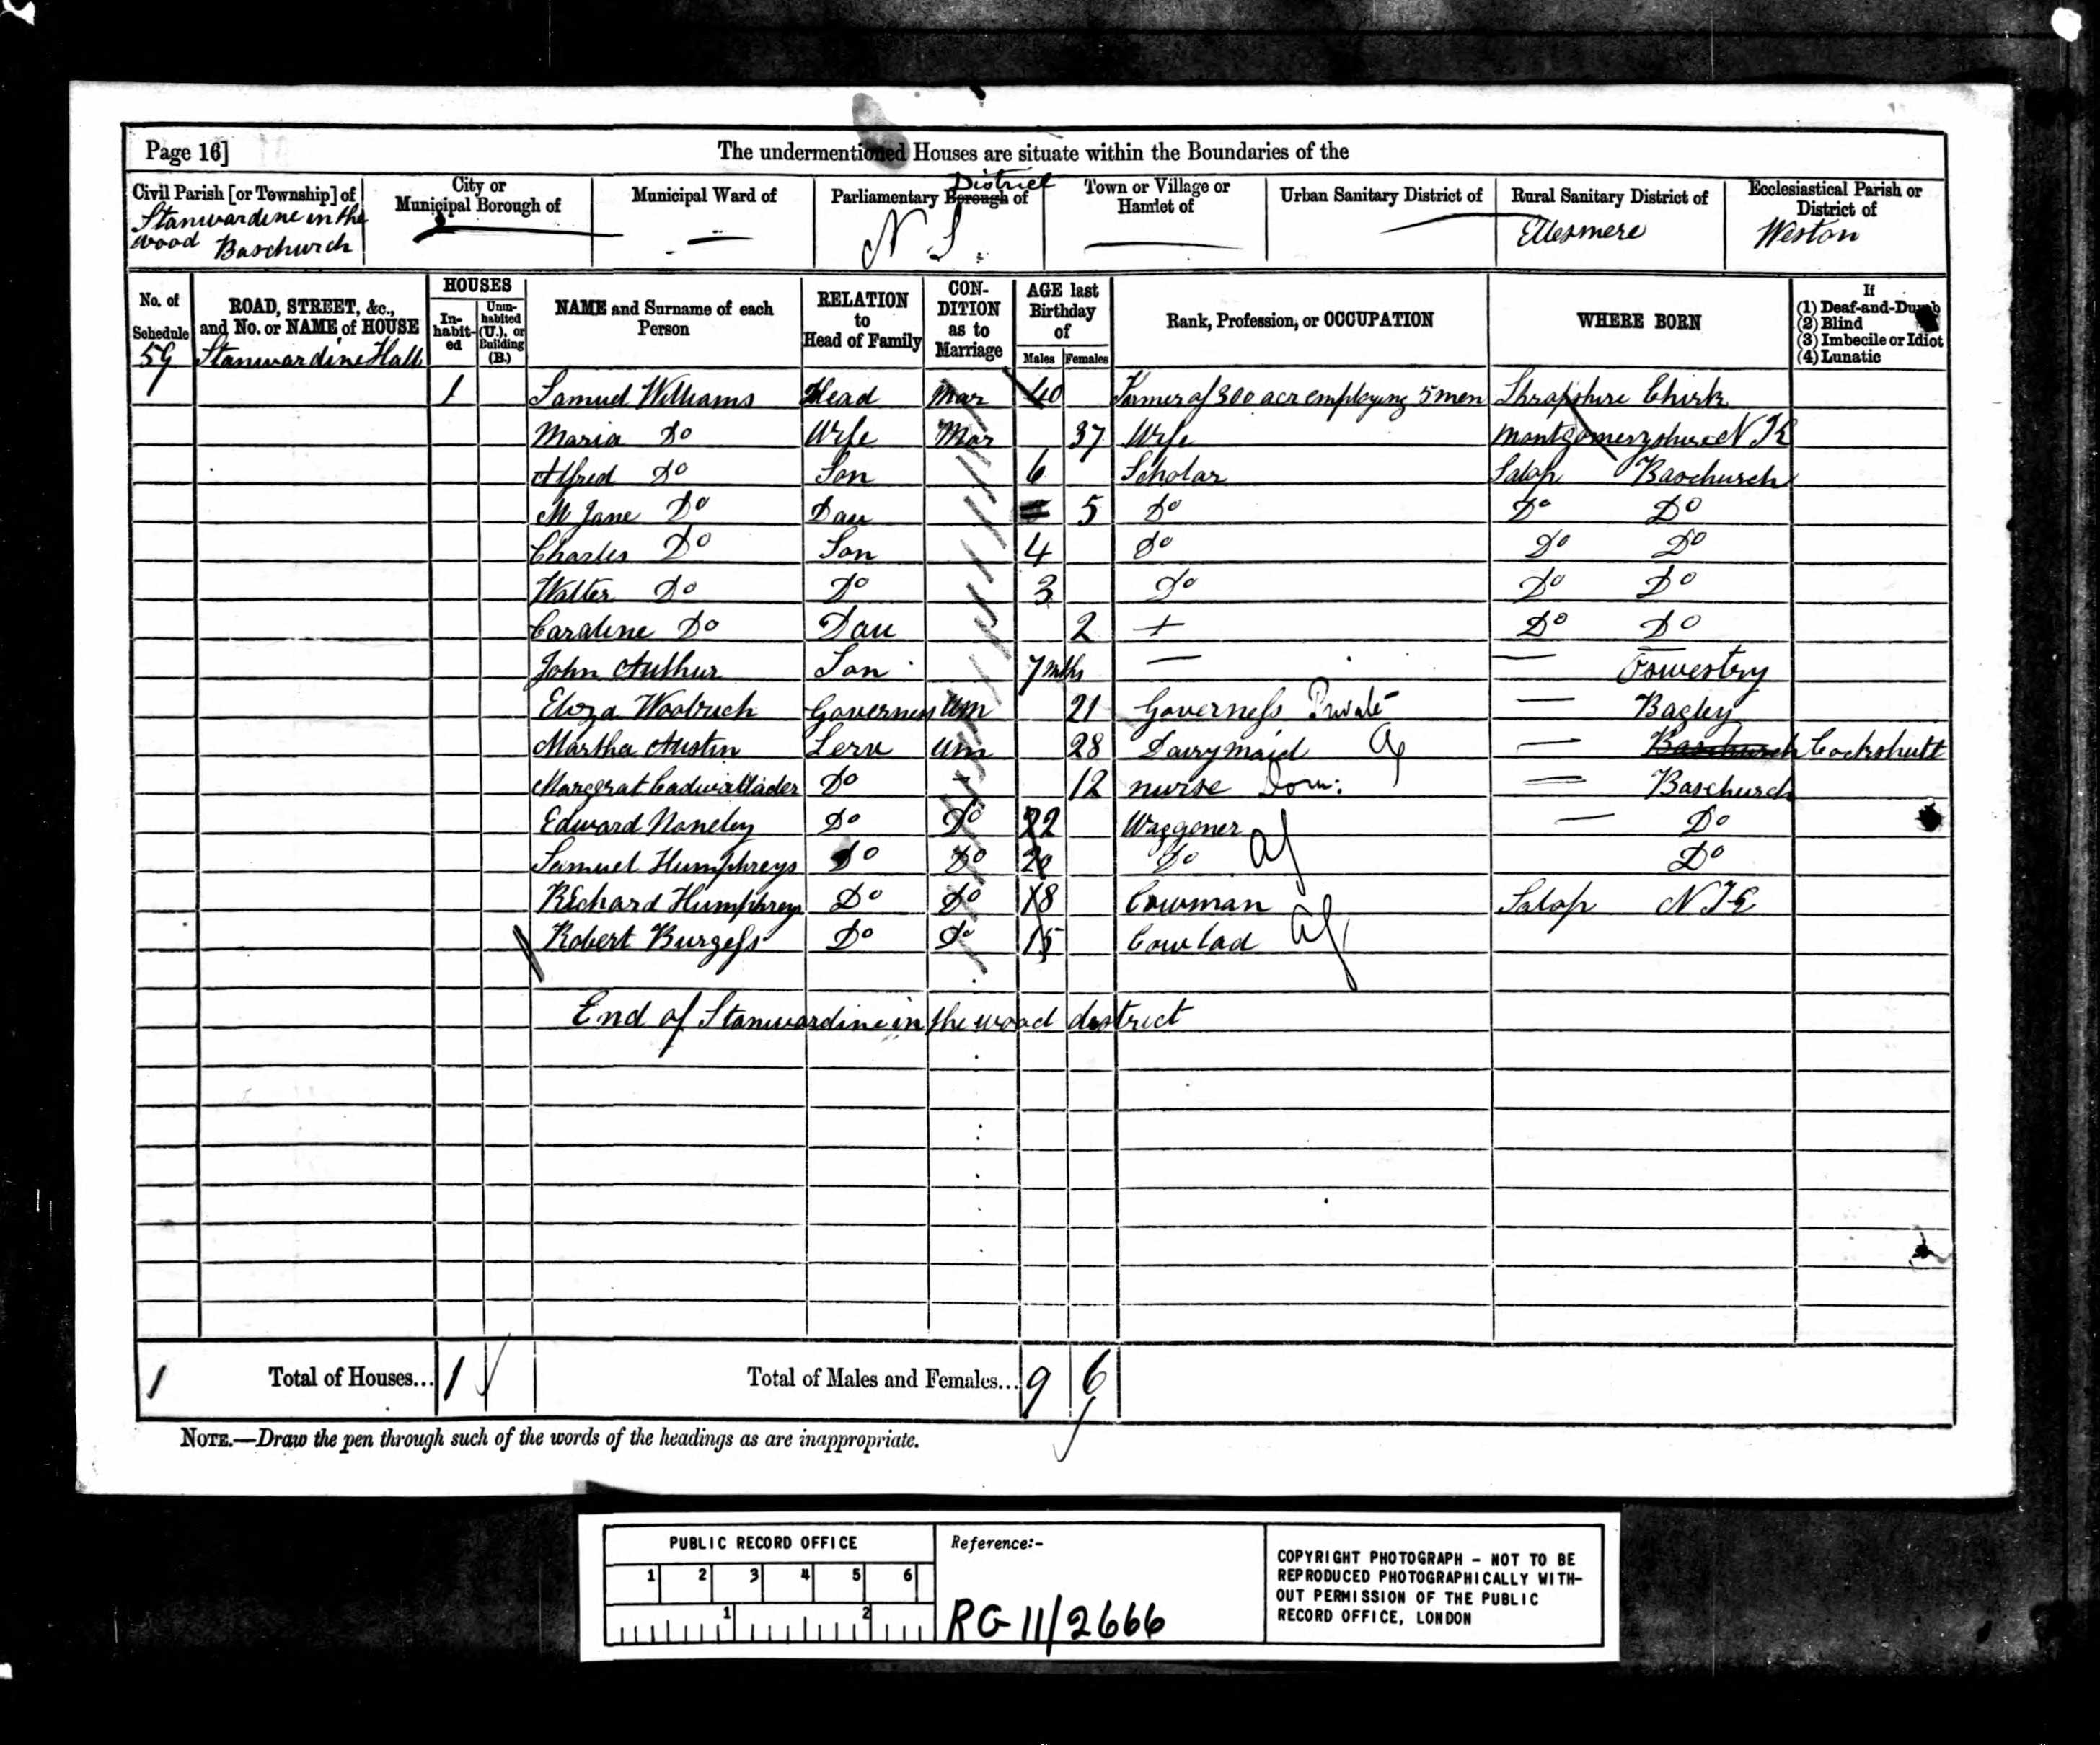 Page 16]
The undermentioned Houses are situate within the Boundaries of the
Civil Parish [or Township] of
Stanwardine in the
wood Baschurch
City or
Municipal Borough of
Municipal Ward of
Parliamentary Borough of
District
N S.
Town or Village or
Hamlet of
Urban Sanitary District of
Rural Sanitary District of
Ellesmere
Ecclesiastical Parish or
District of
Weston
No. of
Schedule
ROAD, STREET, &c.,
and No. or NAME of HOUSE
HOUSES
In-
habit-
ed
Unin-
habited
(U.), or
Building
(B.)
NAME and Surname of each
Person
RELATION
to
Head of Family
CON-
DITION
as to
Marriage
AGE last
Birthday
of
Males Females
Rank, Profession, or OCCUPATION
WHERE BORN
If
(1) Deaf-and-Dumb
(2) Blind
(3) Imbecile or Idiot
(4) Lunatic
59 Stanwardine Hall
1 Samuel Williams Head Mar 40 Farmer of 300 acr employing 5 men Shropshire Chirk
Maria Do Wife Mar 37 Wife Montgomeryshire N K
Alfred Do Son 6 Scholar Salop Baschurch
M Jane Do Dau 5 Do Do Do
Charles Do Son 4 Do Do Do
Walter Do Do 3 Do Do Do
Caroline Do Dau 2 + Do Do
John Arthur Son 7 mths — — Oswestry
Eliza Woolrich Governess Um 21 Governess Private — Bagley
Martha Austin Serv Um 28 Dairymaid Ag — Baschurch Cockshutt
Margrat Cadwalliader Do - 12 nurse Dom: — Baschurch
Edward Noneley Do Do 22 Waggoner — Do
Samuel Humphreys Do Do 20 Do Ag Do
Richard Humphreys Do Do 18 Cowman Salop N K
Robert Burgess Do Do 15 Cow lad Ag
End of Stanwardine in the wood district
1 Total of Houses... 1 Total of Males and Females... 9 6
NOTE.—Draw the pen through such of the words of the headings as are inappropriate.
PUBLIC RECORD OFFICE
1 2 3 4 5 6
1 2
Reference:-
RG 11/2666
COPYRIGHT PHOTOGRAPH - NOT TO BE
REPRODUCED PHOTOGRAPHICALLY WITH-
OUT PERMISSION OF THE PUBLIC
RECORD OFFICE, LONDON